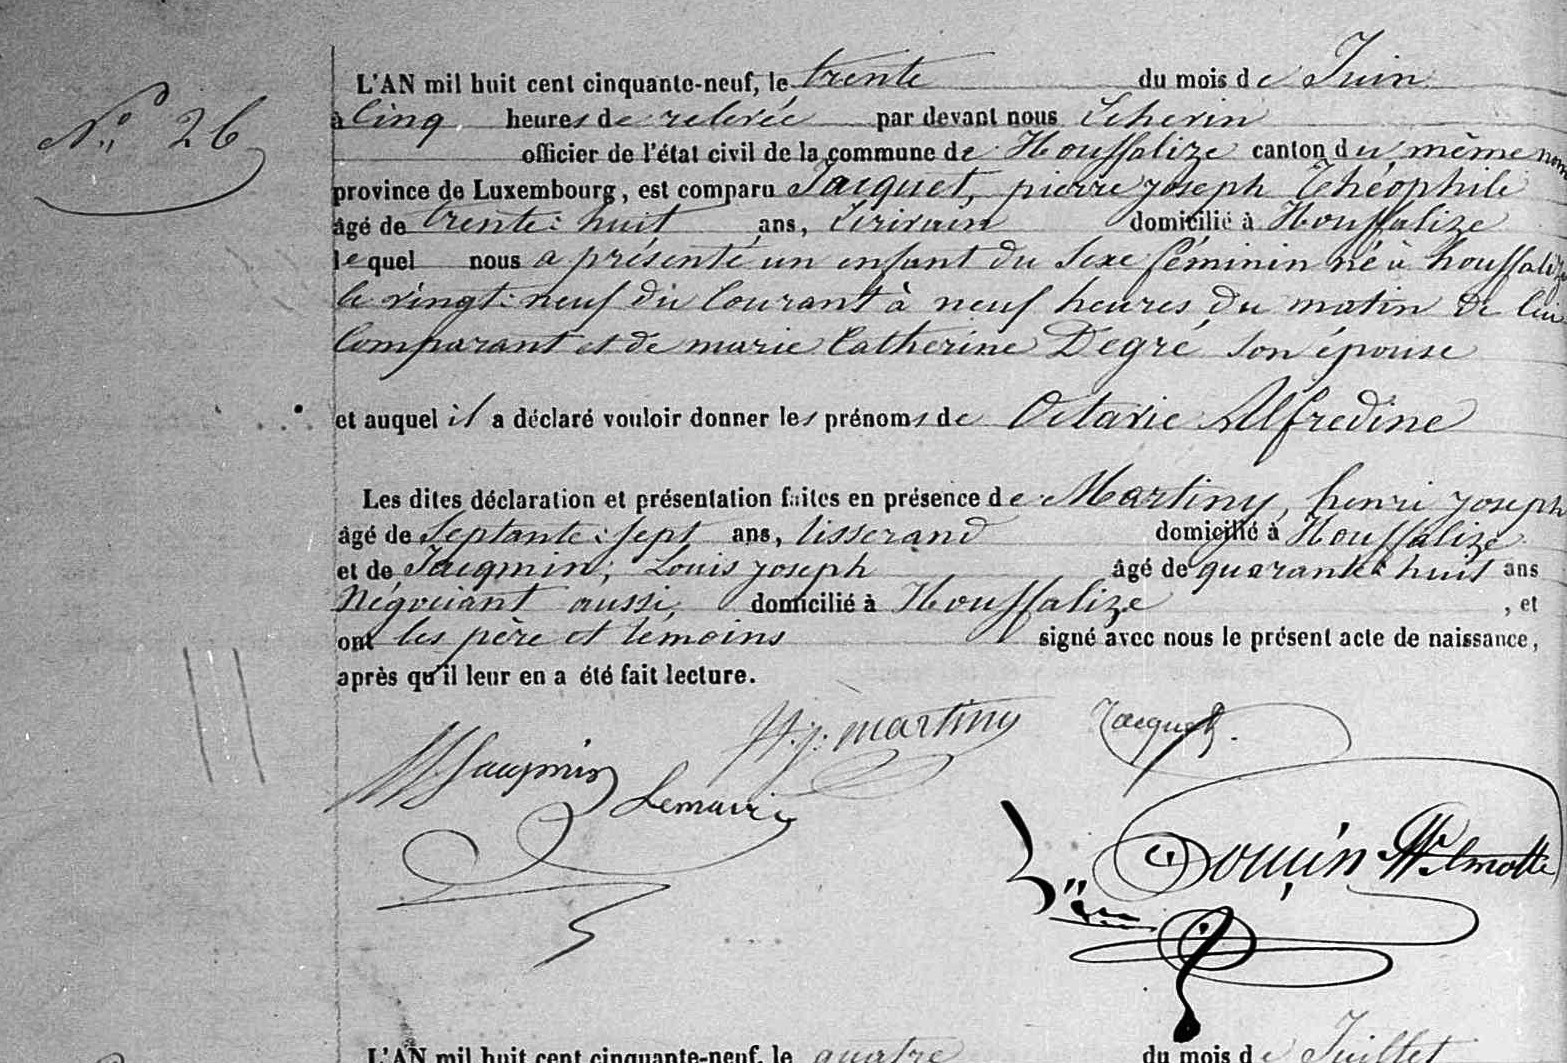 N° 26
L'AN mil huit cent cinquante-neuf, le trente du mois de Juin
à Cinq heures de relevée par devant nous Echevin
officier de l'état civil de la commune de Houffalize canton du même nom
province de Luxembourg, est comparu Jacquet, pierre joseph Théophile
âgé de trente: huit ans, Ecrivain domicilié à Houffalize
lequel nous a présenté un enfant du Sexe féminin né à houffalize
le vingt: neuf du Courant à neuf heures du matin de lui
Comparant et de marie Catherine Degré, son épouse
et auquel il a déclaré vouloir donner les prénoms de Octavie Alfredine
Les dites déclaration et présentation faites en présence de Martiny, henri joseph
âgé de Septante: sept ans, tisserand domicilié à Houffalize
et de Jacqmin, Louis joseph âgé de quarante: huit ans
Négociant aussi domicilié à Houffalize, et
ont les père et témoins signé avec nous le présent acte de naissance,
après qu'il leur en a été fait lecture.
H. j. martiny Jacquet.
Jacqmin Lemaire
Douin Wilmotte
L'AN mil huit cent cinquante-neuf, le quatre du mois de Juillet